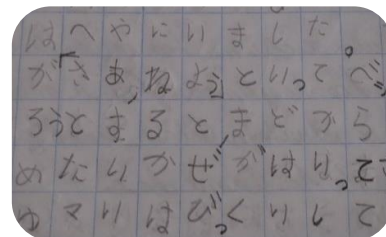 はへやにいました。
が「さあ、ねようといってべ
ろうとするとまどから
めたいかぜがはいって
はびっくりして